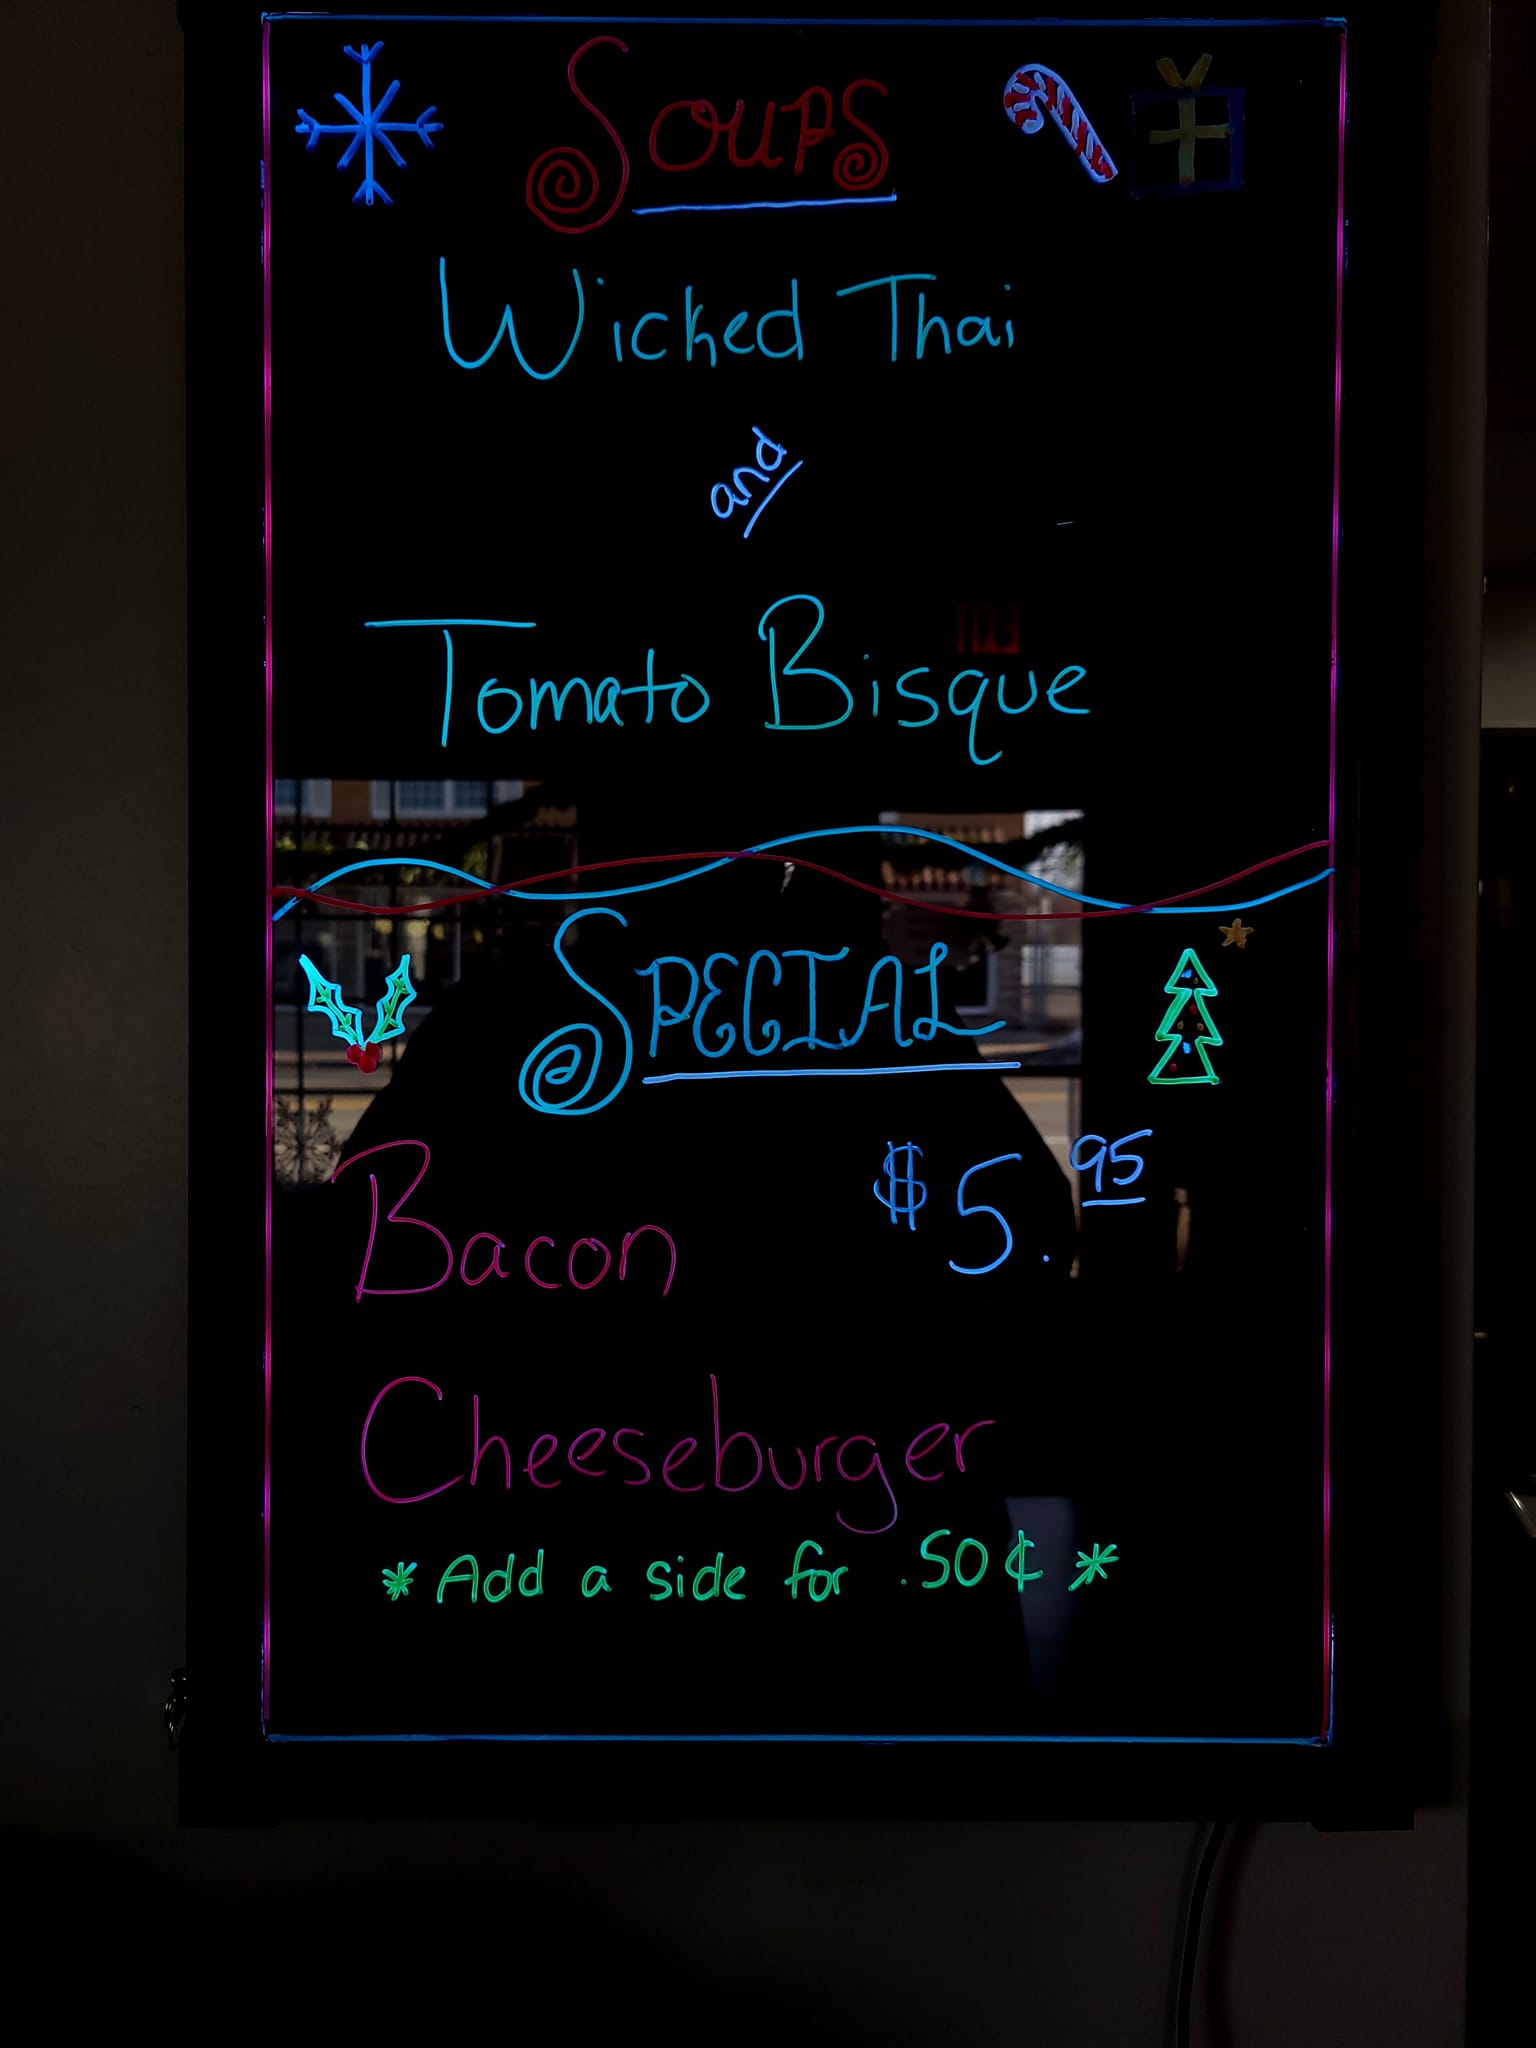 Soups
Wicked Thai
and
Tomato Bisque
Special
Bacon $5.95
Cheeseburger
*Add a side for .50¢*